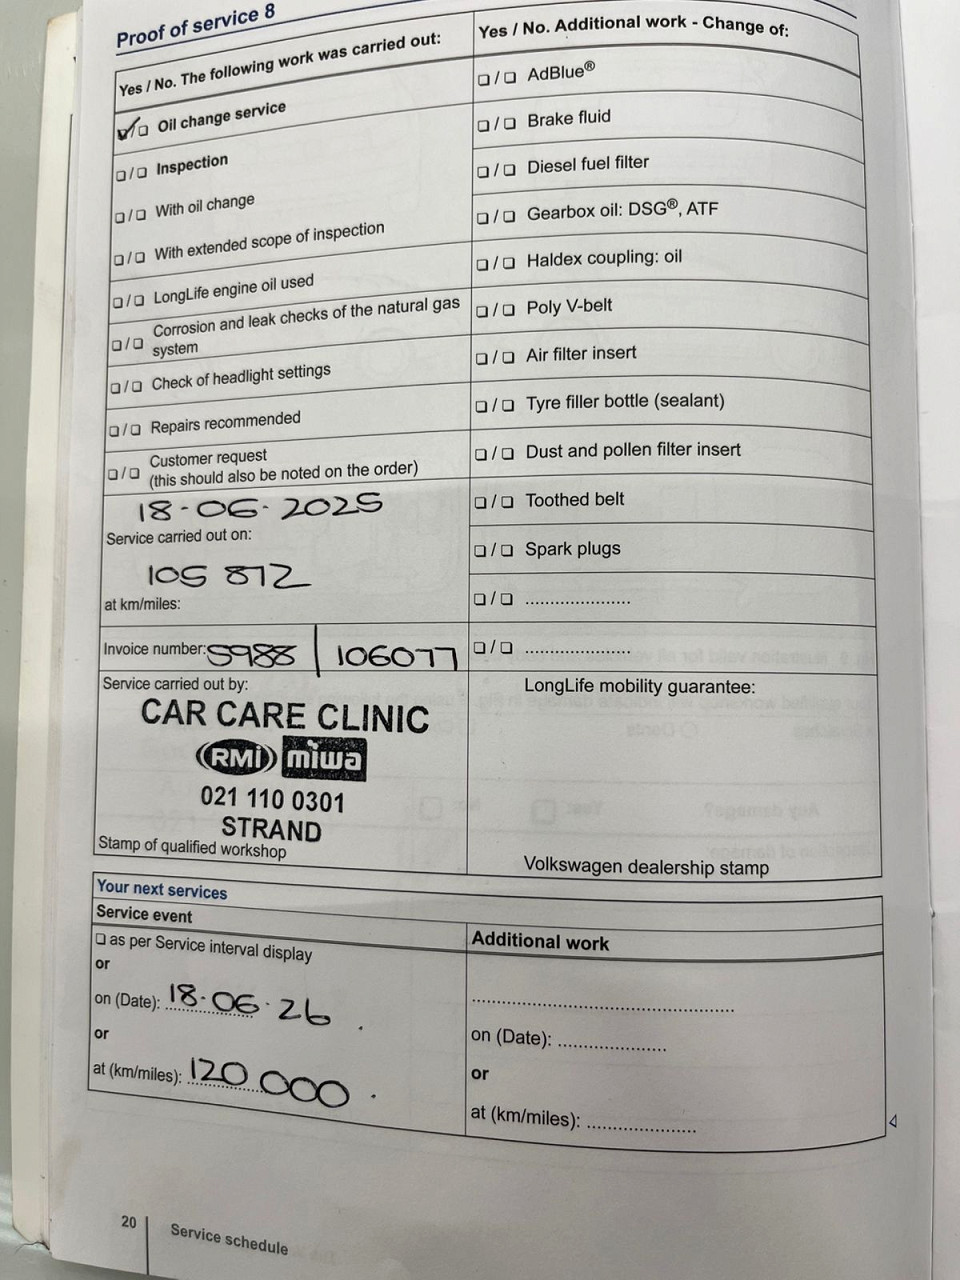 Proof of service 8
Yes / No. The following work was carried out:
☑/☐ Oil change service
☐/☐ Inspection
☐/☐ With oil change
☐/☐ With extended scope of inspection
☐/☐ LongLife engine oil used
☐/☐ Corrosion and leak checks of the natural gas
system
☐/☐ Check of headlight settings
☐/☐ Repairs recommended
☐/☐ Customer request
(this should also be noted on the order)
18-06-2025
Service carried out on:
105 872
at km/miles:
Invoice number: 5988 | 106077
Service carried out by:
CAR CARE CLINIC
RMi miwa
021 110 0301
STRAND
Stamp of qualified workshop
Yes / No. Additional work - Change of:
☐/☐ AdBlue®
☐/☐ Brake fluid
☐/☐ Diesel fuel filter
☐/☐ Gearbox oil: DSG®, ATF
☐/☐ Haldex coupling: oil
☐/☐ Poly V-belt
☐/☐ Air filter insert
☐/☐ Tyre filler bottle (sealant)
☐/☐ Dust and pollen filter insert
☐/☐ Toothed belt
☐/☐ Spark plugs
☐/☐ .....................
☐/☐ .....................
LongLife mobility guarantee:
Volkswagen dealership stamp
Your next services
Service event
☐ as per Service interval display
or
on (Date): 18-06-26.
or
at (km/miles): 120 000.
Additional work
.....................................................
on (Date): ......................
or
at (km/miles): ......................
20
Service schedule